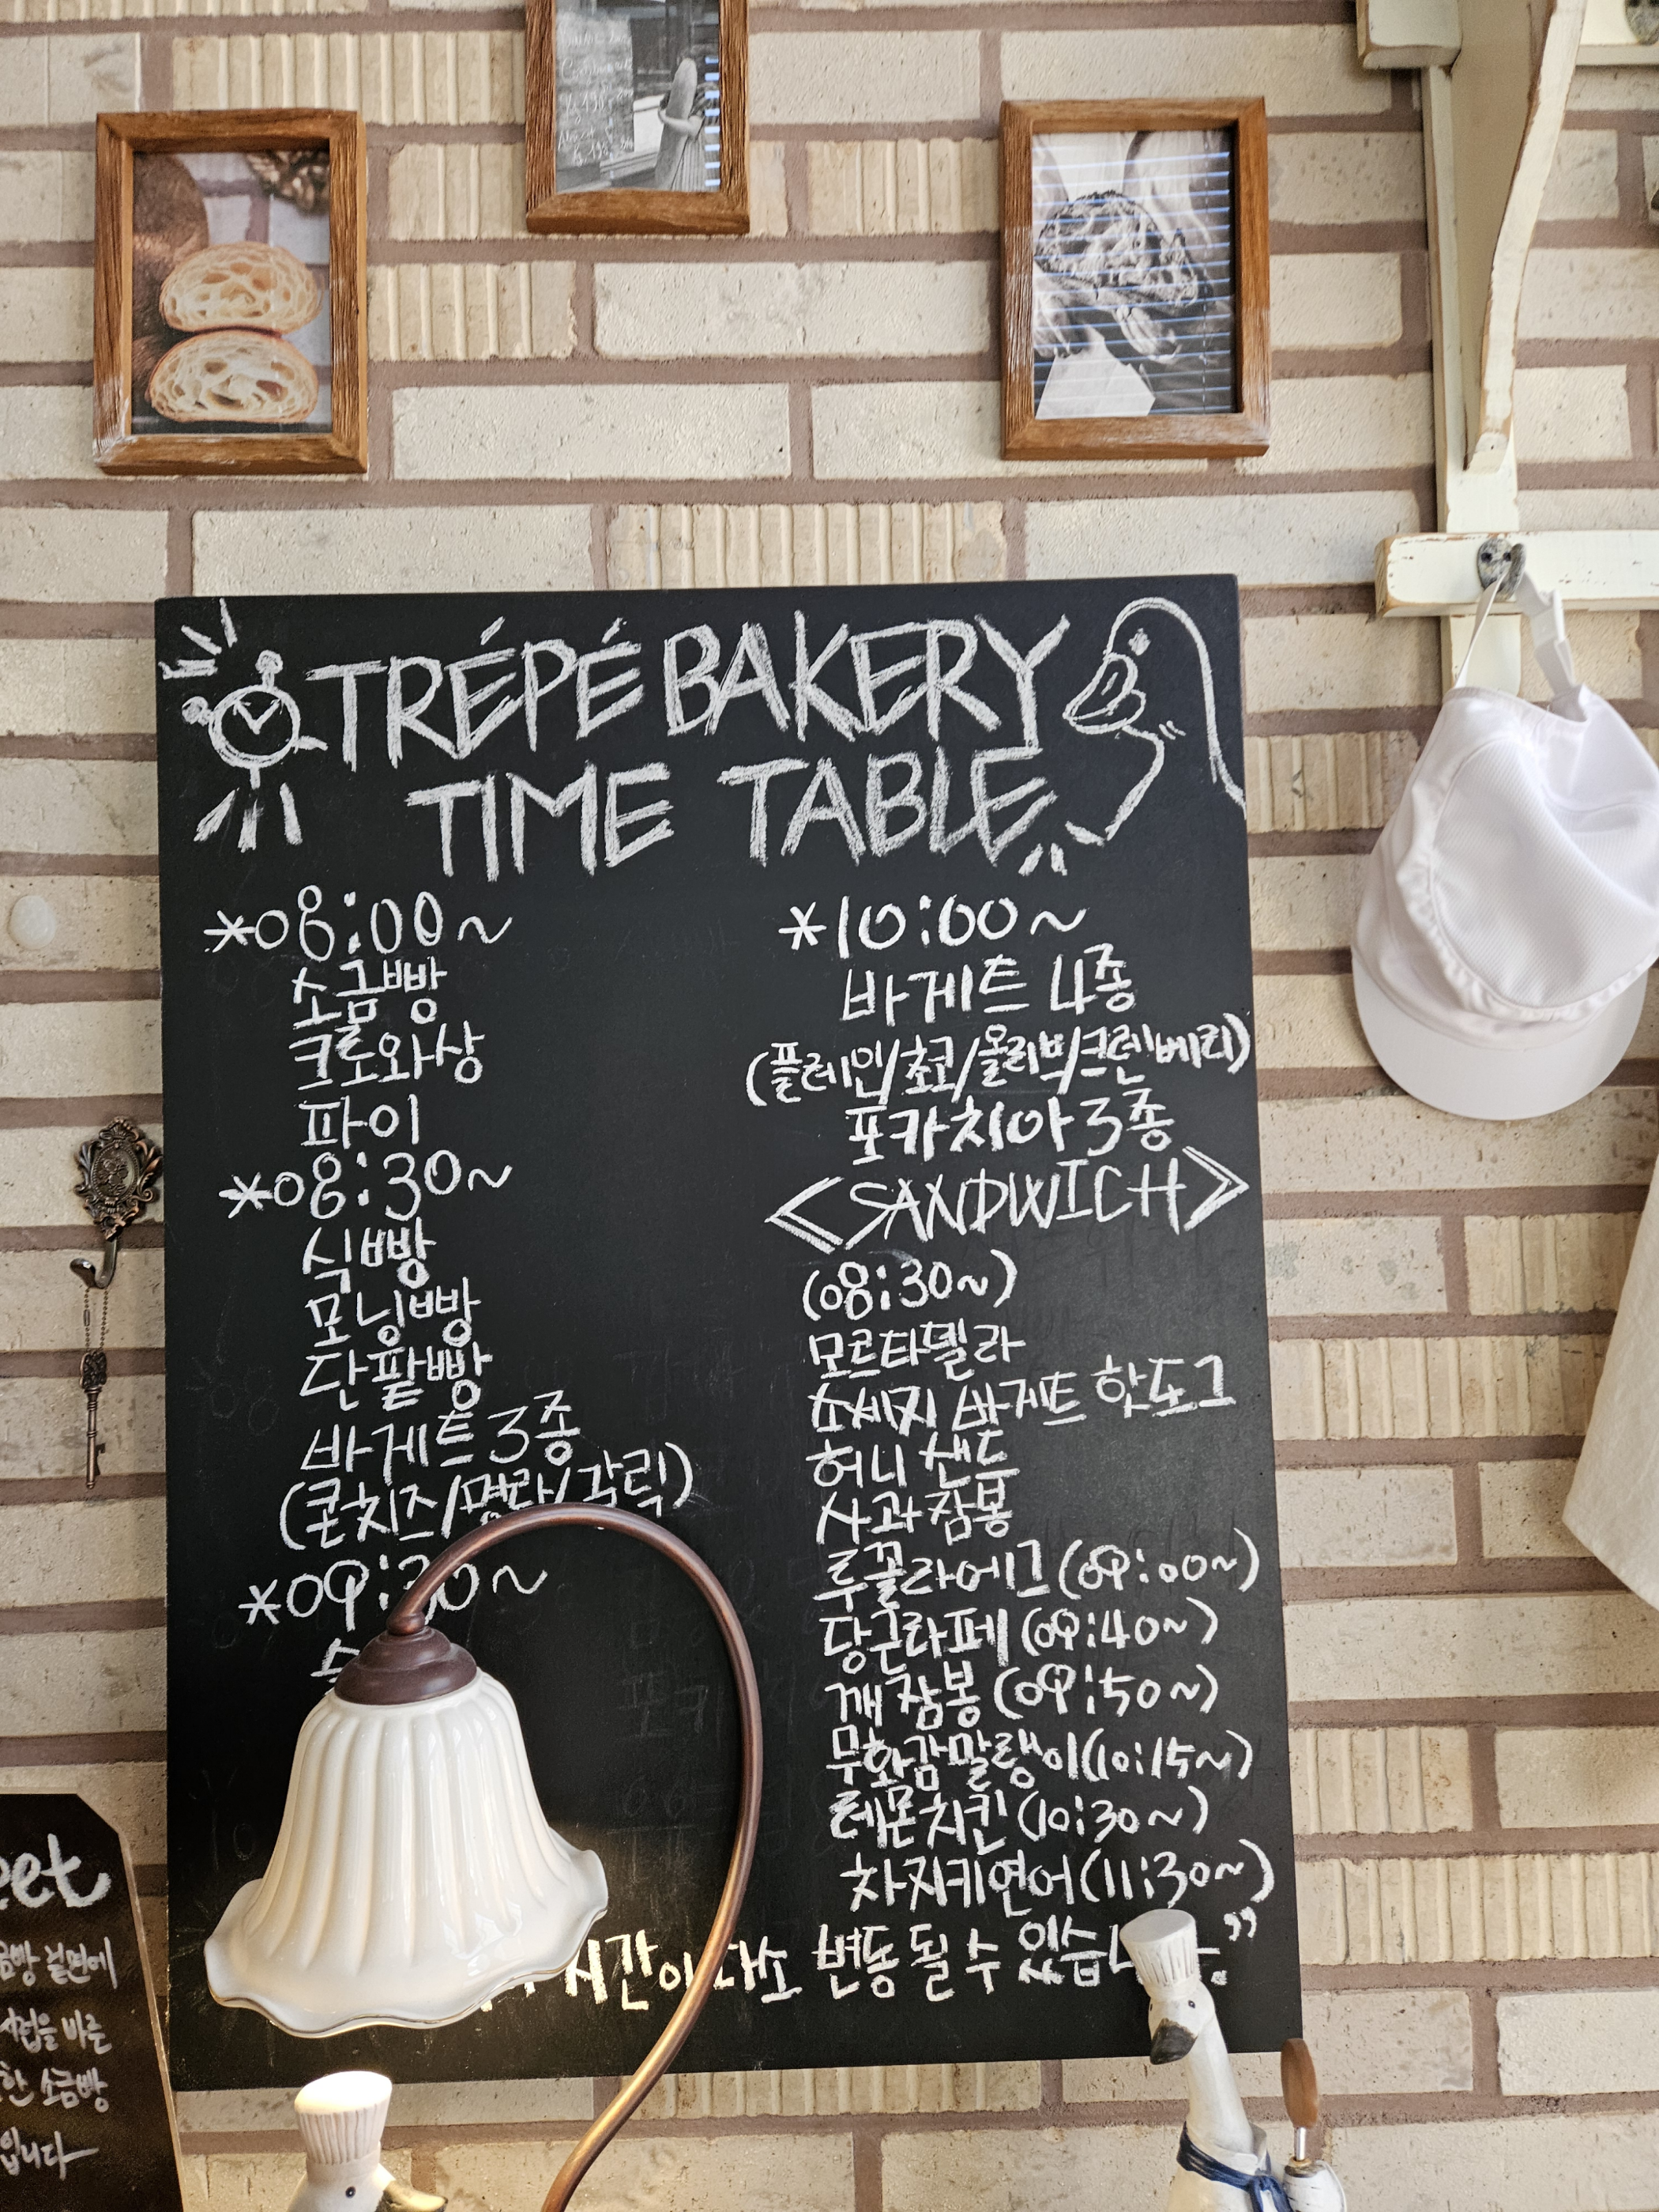 TRÉPÉ BAKERY
TIME TABLE
*08:00~
소금빵
크로와상
파이
*08:30~
식빵
모닝빵
단팥빵
바게트 3종
(콘치즈/명란/갈릭)
*09:30~
*10:00~
바게트 4종
(플레인/초코/올리브/크렌베리)
포카치아 3종
<SANDWICH>
(08:30~)
모르타델라
소세지 바게트 핫도그
허니 샌드
사과잠봉
루꼴라에그 (09:00~)
당근라페 (09:40~)
깨잠봉 (09:50~)
무화감말랭이 (10:15~)
레몬치킨 (10:30~)
차지키연어 (11:30~)
시간이 다소 변동 될 수 있습니다."
eet
금빵 밑면에
시럽을 바른
한 소금빵
입니다